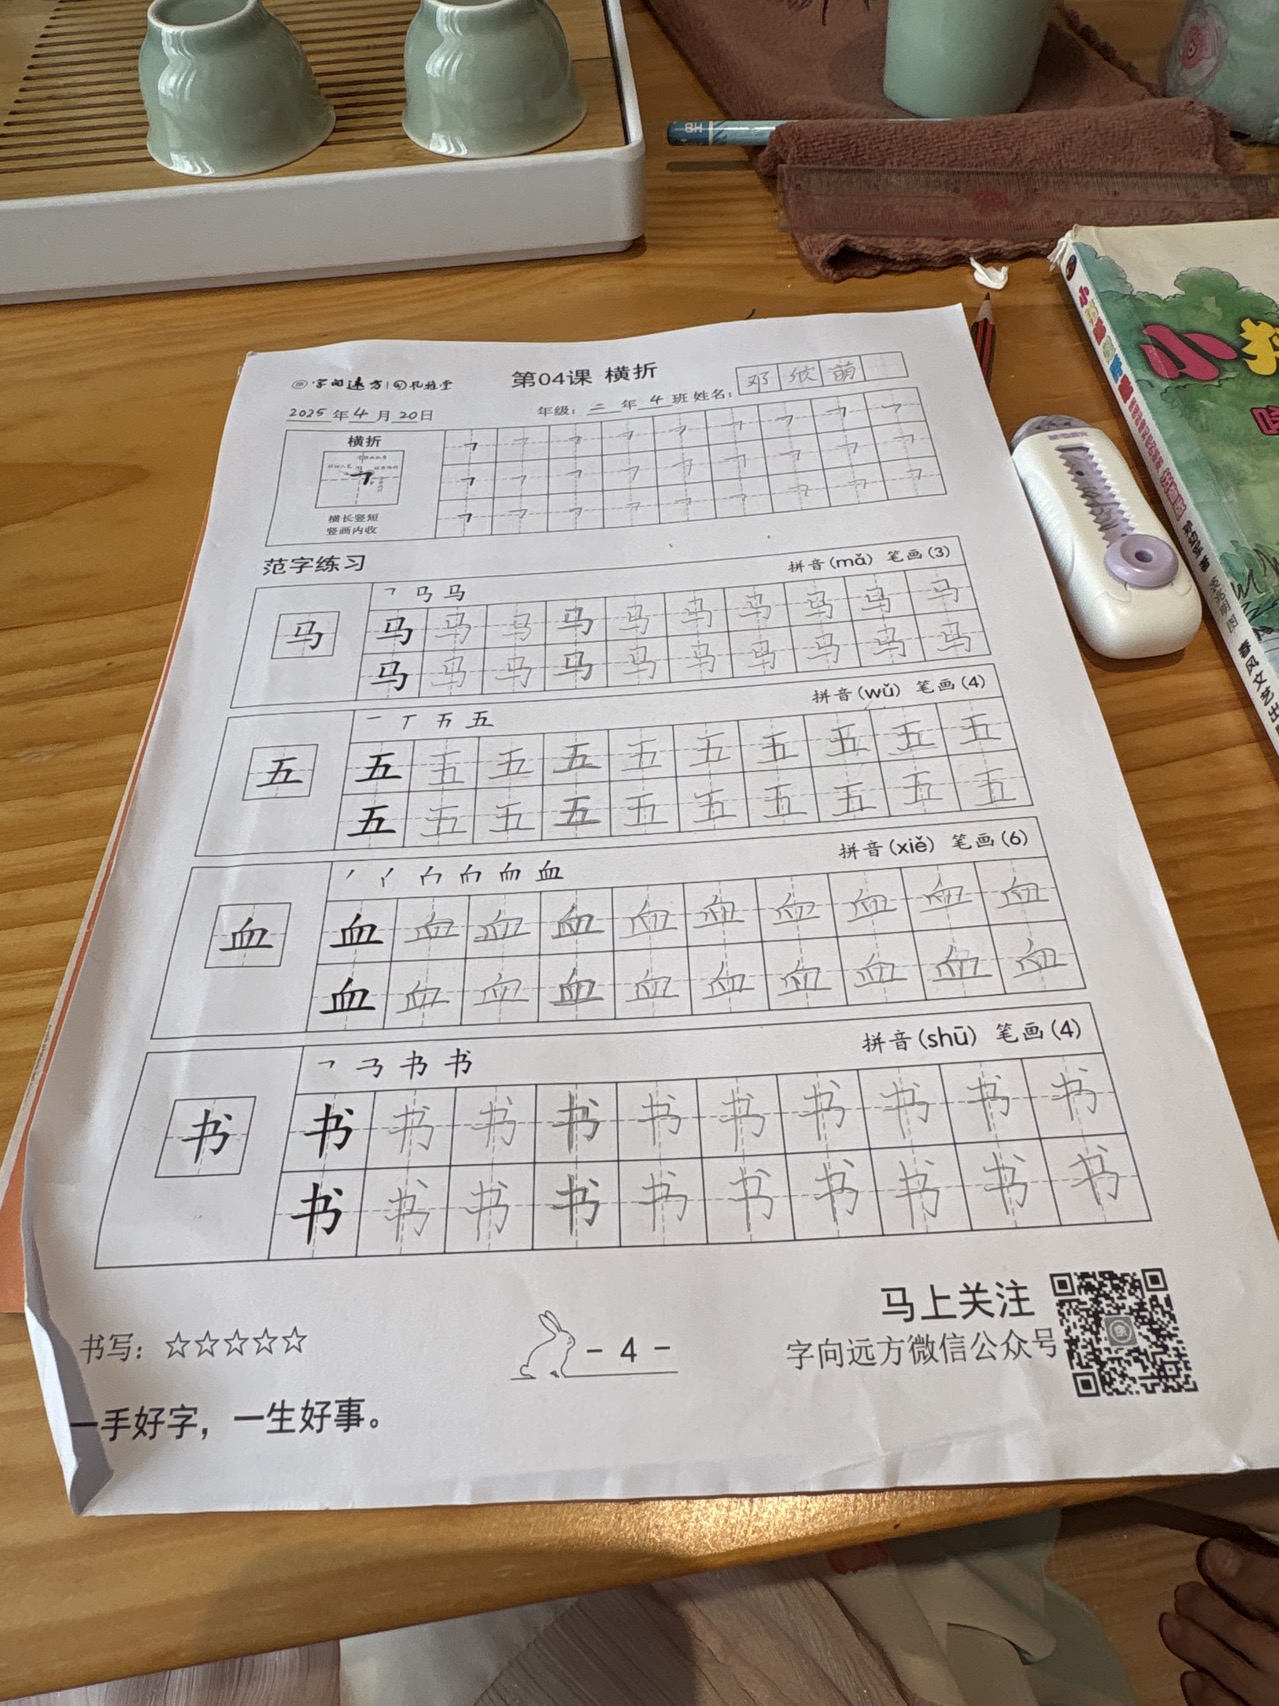 HB
字向远方
第04课 横折
邓欣萌
2025年4月20日
年级：二年4班 姓名：
横折
横长竖短
竖画内收
范字练习
拼音(mǎ) 笔画(3)
㇕ 马 马
马 马 马 马 马 马 马 马 马 马 马
马 马 马 马 马 马 马 马 马 马
拼音(wǔ) 笔画(4)
一 丅 五
五 五 五 五 五 五 五 五 五 五 五
五 五 五 五 五 五 五 五 五 五
拼音(xiě) 笔画(6)
丿 血
血 血 血 血 血 血 血 血 血 血 血
血 血 血 血 血 血 血 血 血 血
拼音(shū) 笔画(4)
㇕ 书 书
书 书 书 书 书 书 书 书 书 书 书
书 书 书 书 书 书 书 书 书 书
书写：☆☆☆☆☆
- 4 -
马上关注
字向远方微信公众号
一手好字，一生好事。
小
春风文艺出